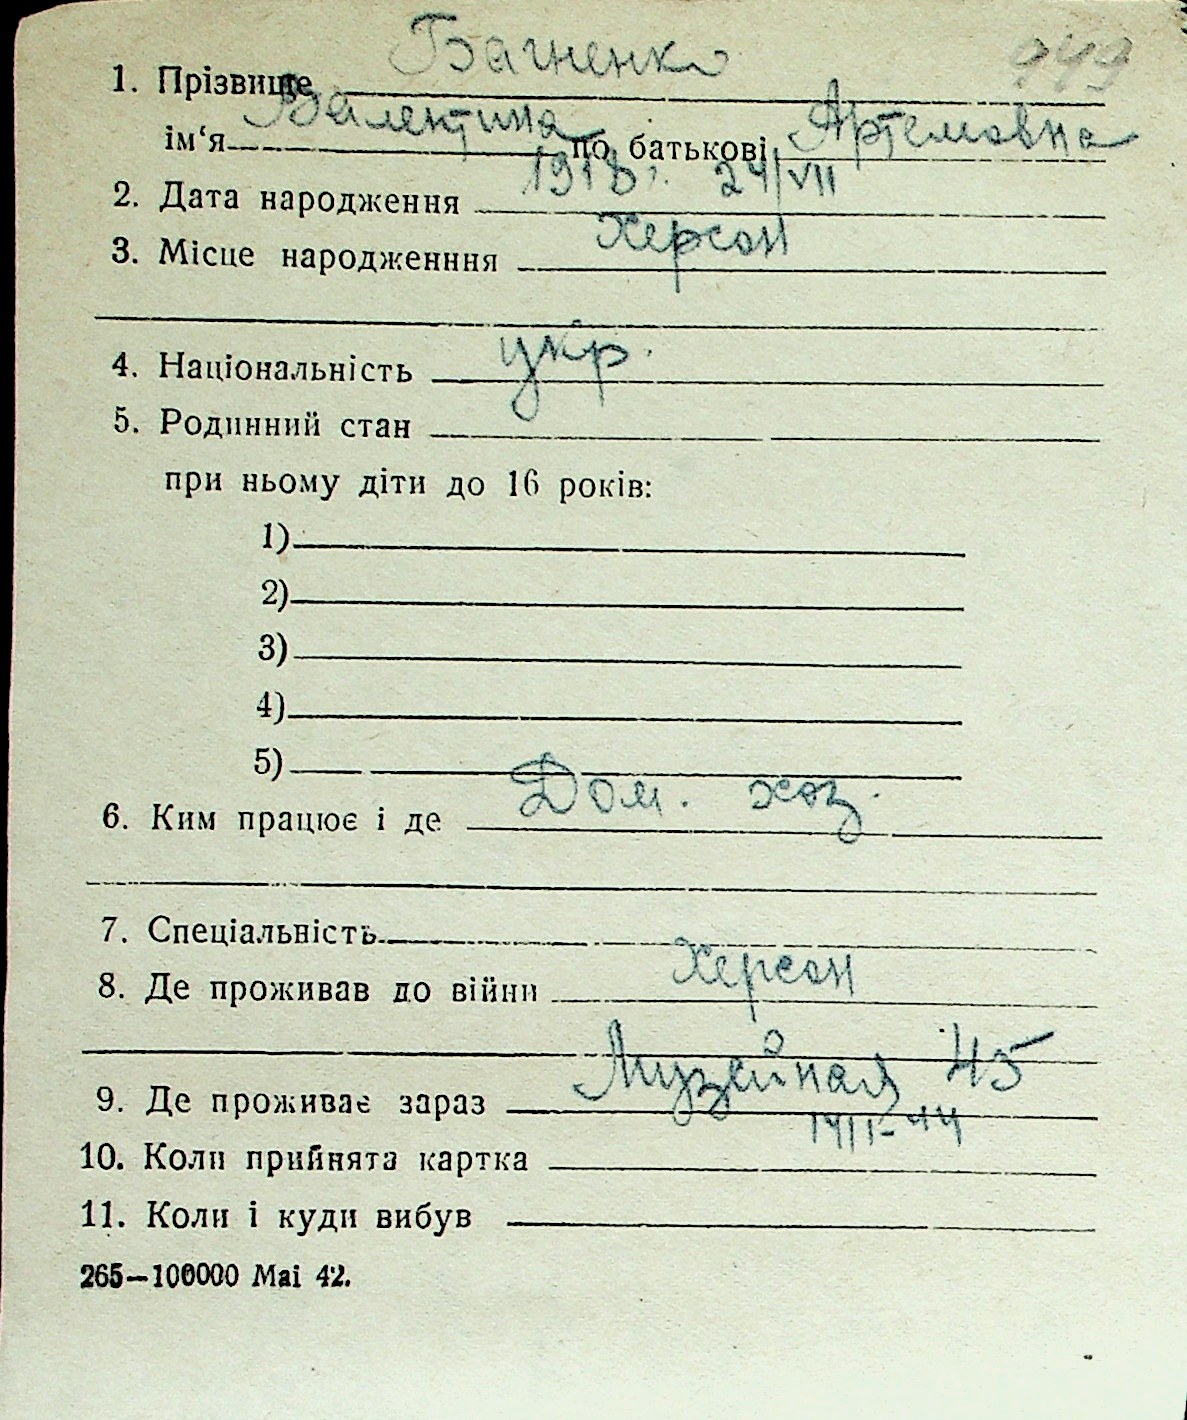 949
1. Прізвище Багненко
ім‘я Валентина по батькові Артемовна
2. Дата народження 1918 г. 24/VII
3. Місце народженння Херсон
4. Національність укр.
5. Родинний стан
при ньому діти до 16 років:
1)
2)
3)
4)
5)
6. Ким працює і де Дом. хоз.
7. Спеціальність
8. Де проживав до війни Херсон
9. Де проживає зараз Музейная 45
10. Коли прийнята картка
11. Коли і куди вибув
265—100000 Mai 42.